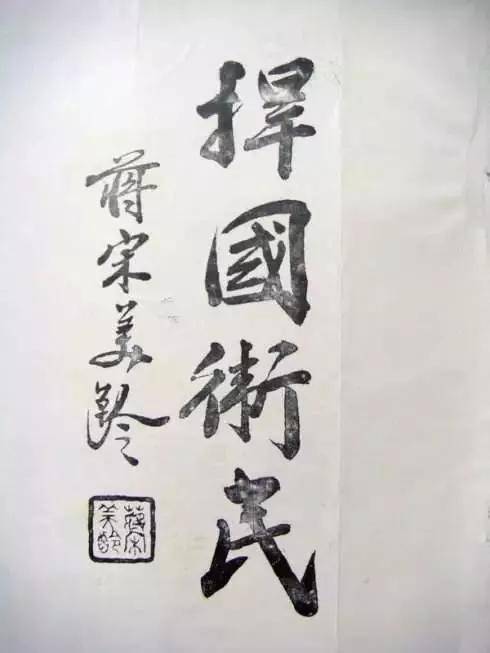 捍國衛民
蔣宋美齡
蔣宋
美齡